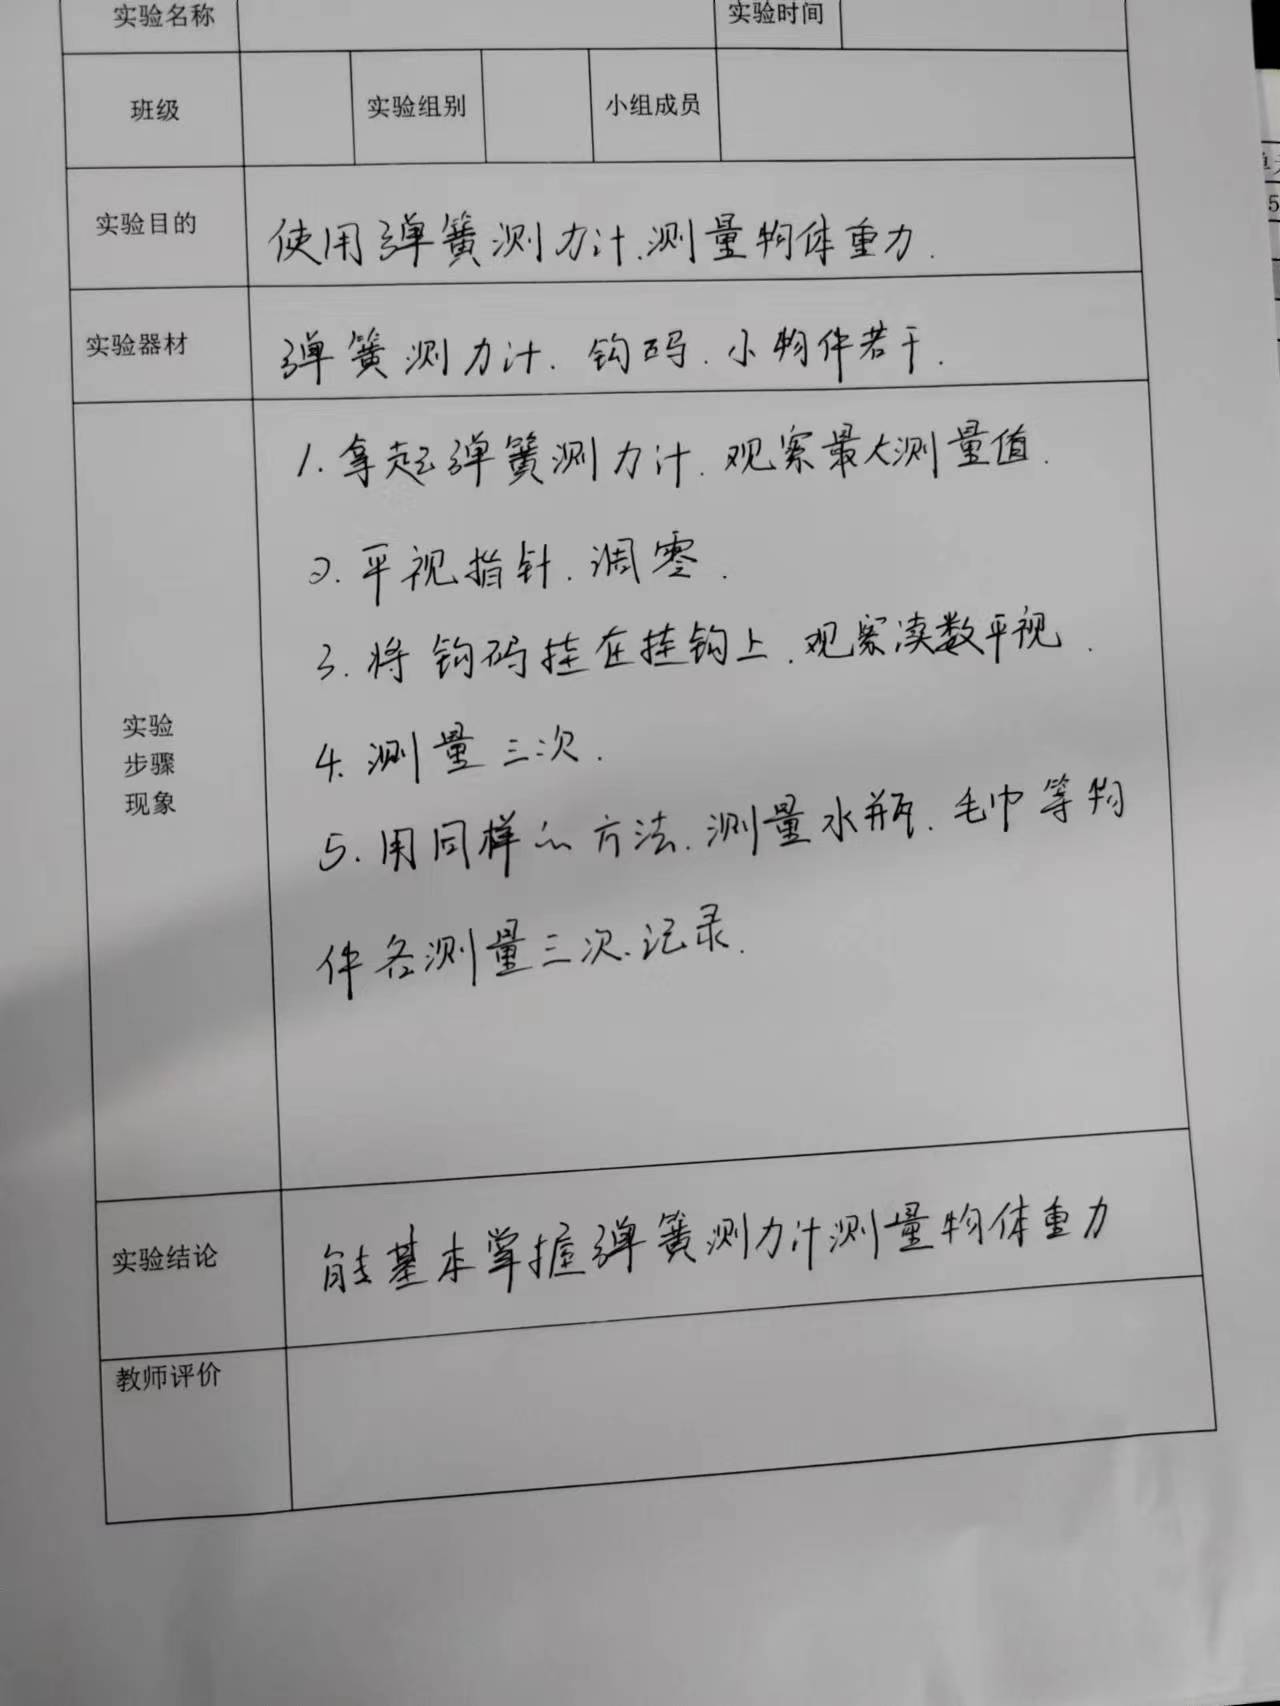 实验名称 实验时间
班级 实验组别 小组成员
实验目的 使用弹簧测力计.测量物体重力.
实验器材 弹簧测力计.钩码.小物件若干.
1.拿起弹簧测力计.观察最大测量值.
2.平视指针.调零.
3.将钩码挂在挂钩上.观察读数平视.
实验
步骤
现象
4.测量三次.
5.用同样的方法.测量水瓶.毛巾等物
件各测量三次.记录.
实验结论 能基本掌握弹簧测力计测量物体重力
教师评价